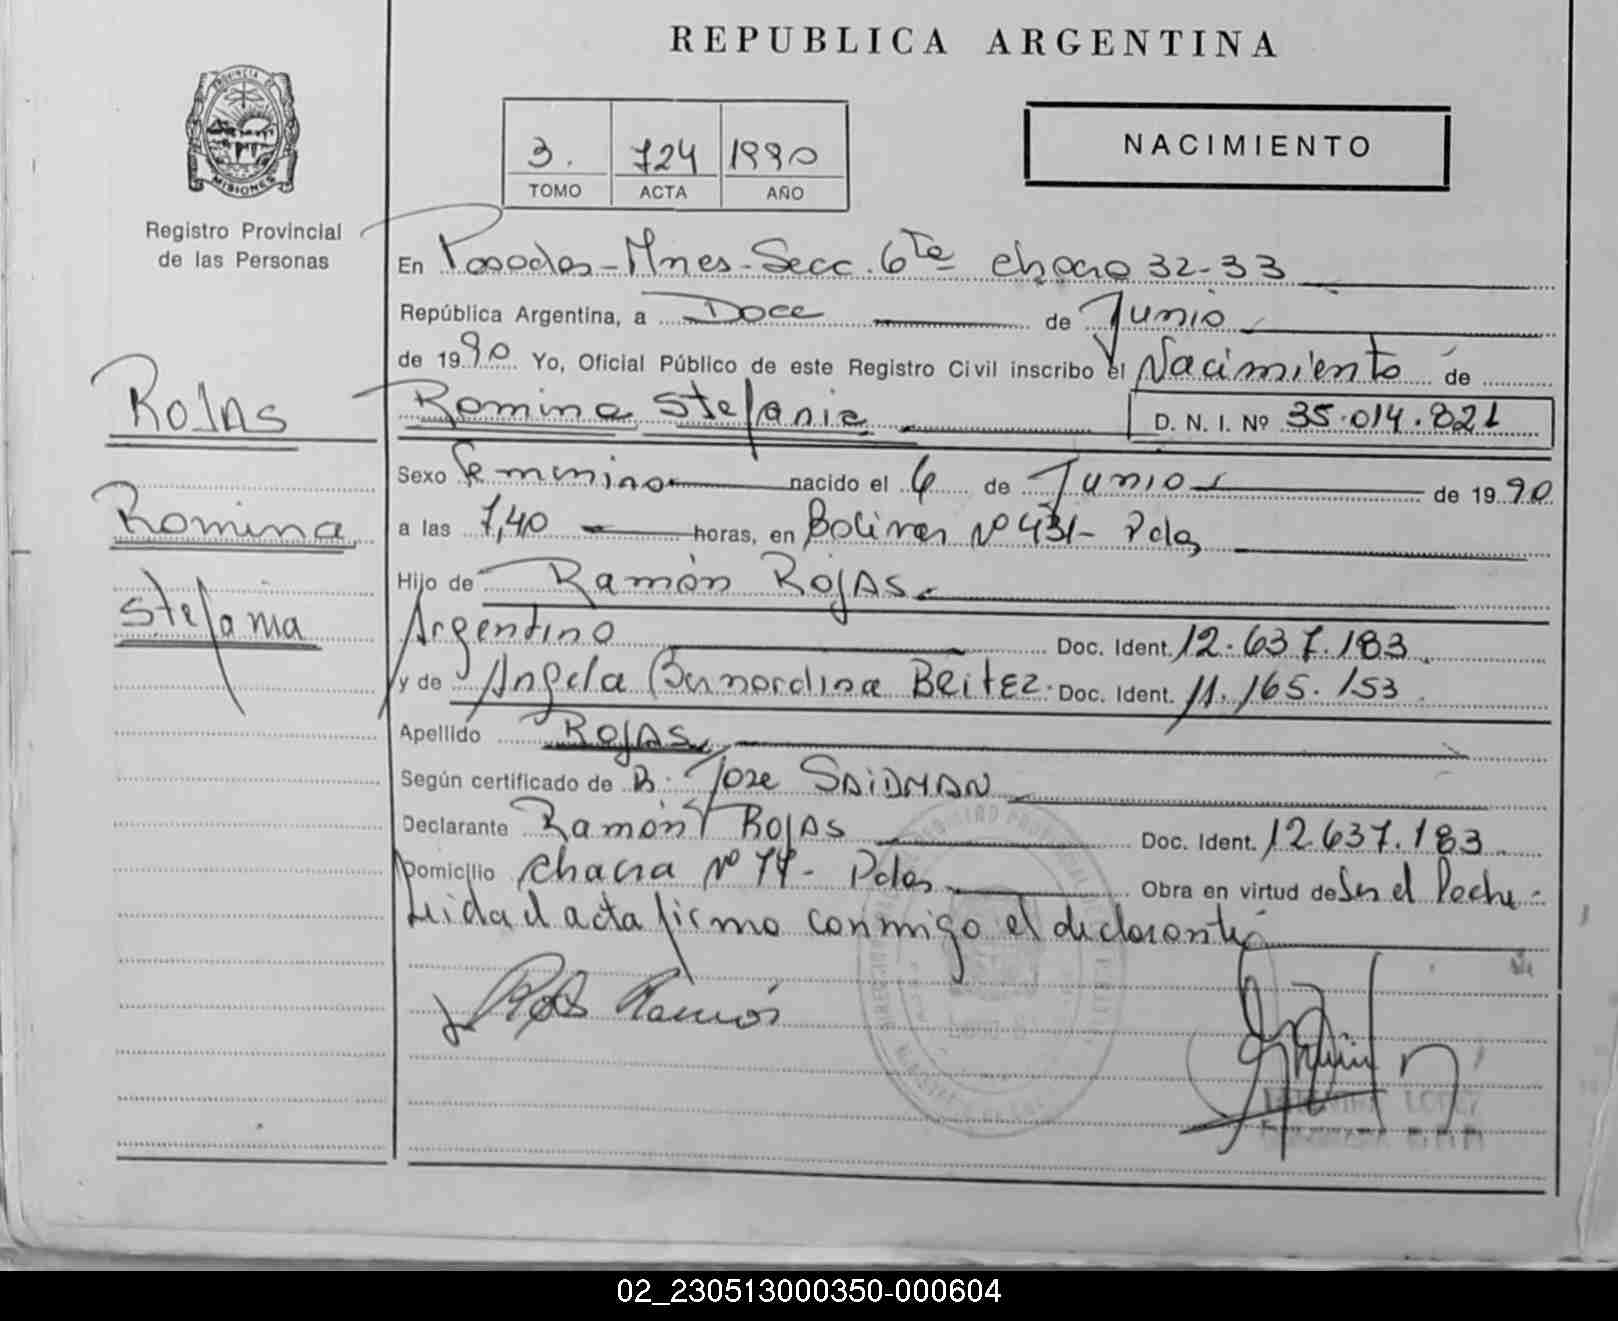 REPUBLICA ARGENTINA
PROVINCIA DE MISIONES
Registro Provincial
de las Personas
3. 724 1990
TOMO ACTA AÑO
NACIMIENTO
En Posadas - Mnes - Secc. 6ta chacra 32-33
República Argentina, a Doce de Junio
de 1990 Yo, Oficial Público de este Registro Civil inscribo el Nacimiento de
Romina Stefania D. N. I. Nº 35.014.821
Sexo Femenino nacido el 6 de Junio de 1990
a las 7,40 horas, en Bolivar Nº 431- Pdas
Hijo de Ramón Rojas
Argentino Doc. Ident. 12.637.183
y de Angela Bernardina Beitez. Doc. Ident. 11.165.153
Apellido Rojas
Según certificado de Jose SAIDMAN
Declarante Ramón Rojas Doc. Ident. 12.637.183
Domicilio Chacra Nº 77 - Pdas Obra en virtud de Ser el Padre -
Leida el acta firma conmigo el declarante
Rojas Ramón
LOPEZ
ROJAS
Romina
Stefania
02_230513000350-000604